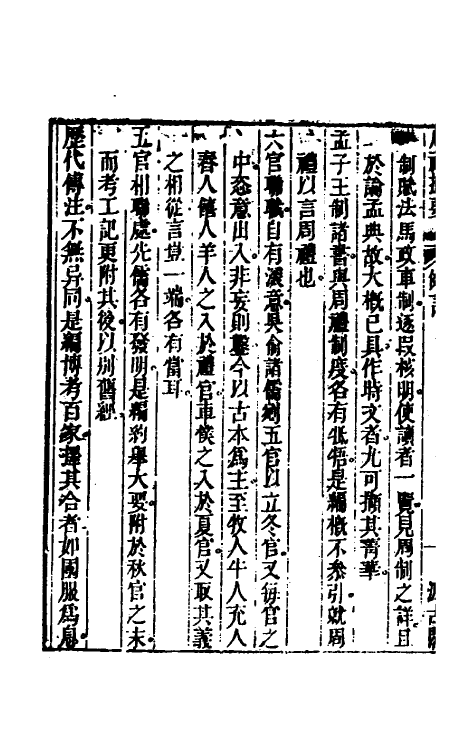 制賦法馬政車制逐段核明使讀者一覽見周制之詳且
於論孟典故大概已具作時文者尤可擷其菁華
孟子王制諸書與周禮制度各有牴牾是編概不叅引就周
禮以言周禮也
六官聯職自有深意吳俞諸儒割五官以立冬官又每官之
中恣意出入非妄則鑿今以古本為主至牧人牛人充人
舂人饎人羊人之入於禮官車僕之入於夏官又取其義
之相從言豈一端各有當耳
五官相聯處先儒各有發明是編約舉大要附於秋官之末
而考工記更附其後以別舊經
歷代傳注不無异同是編博考百家擇其合者如國服為息